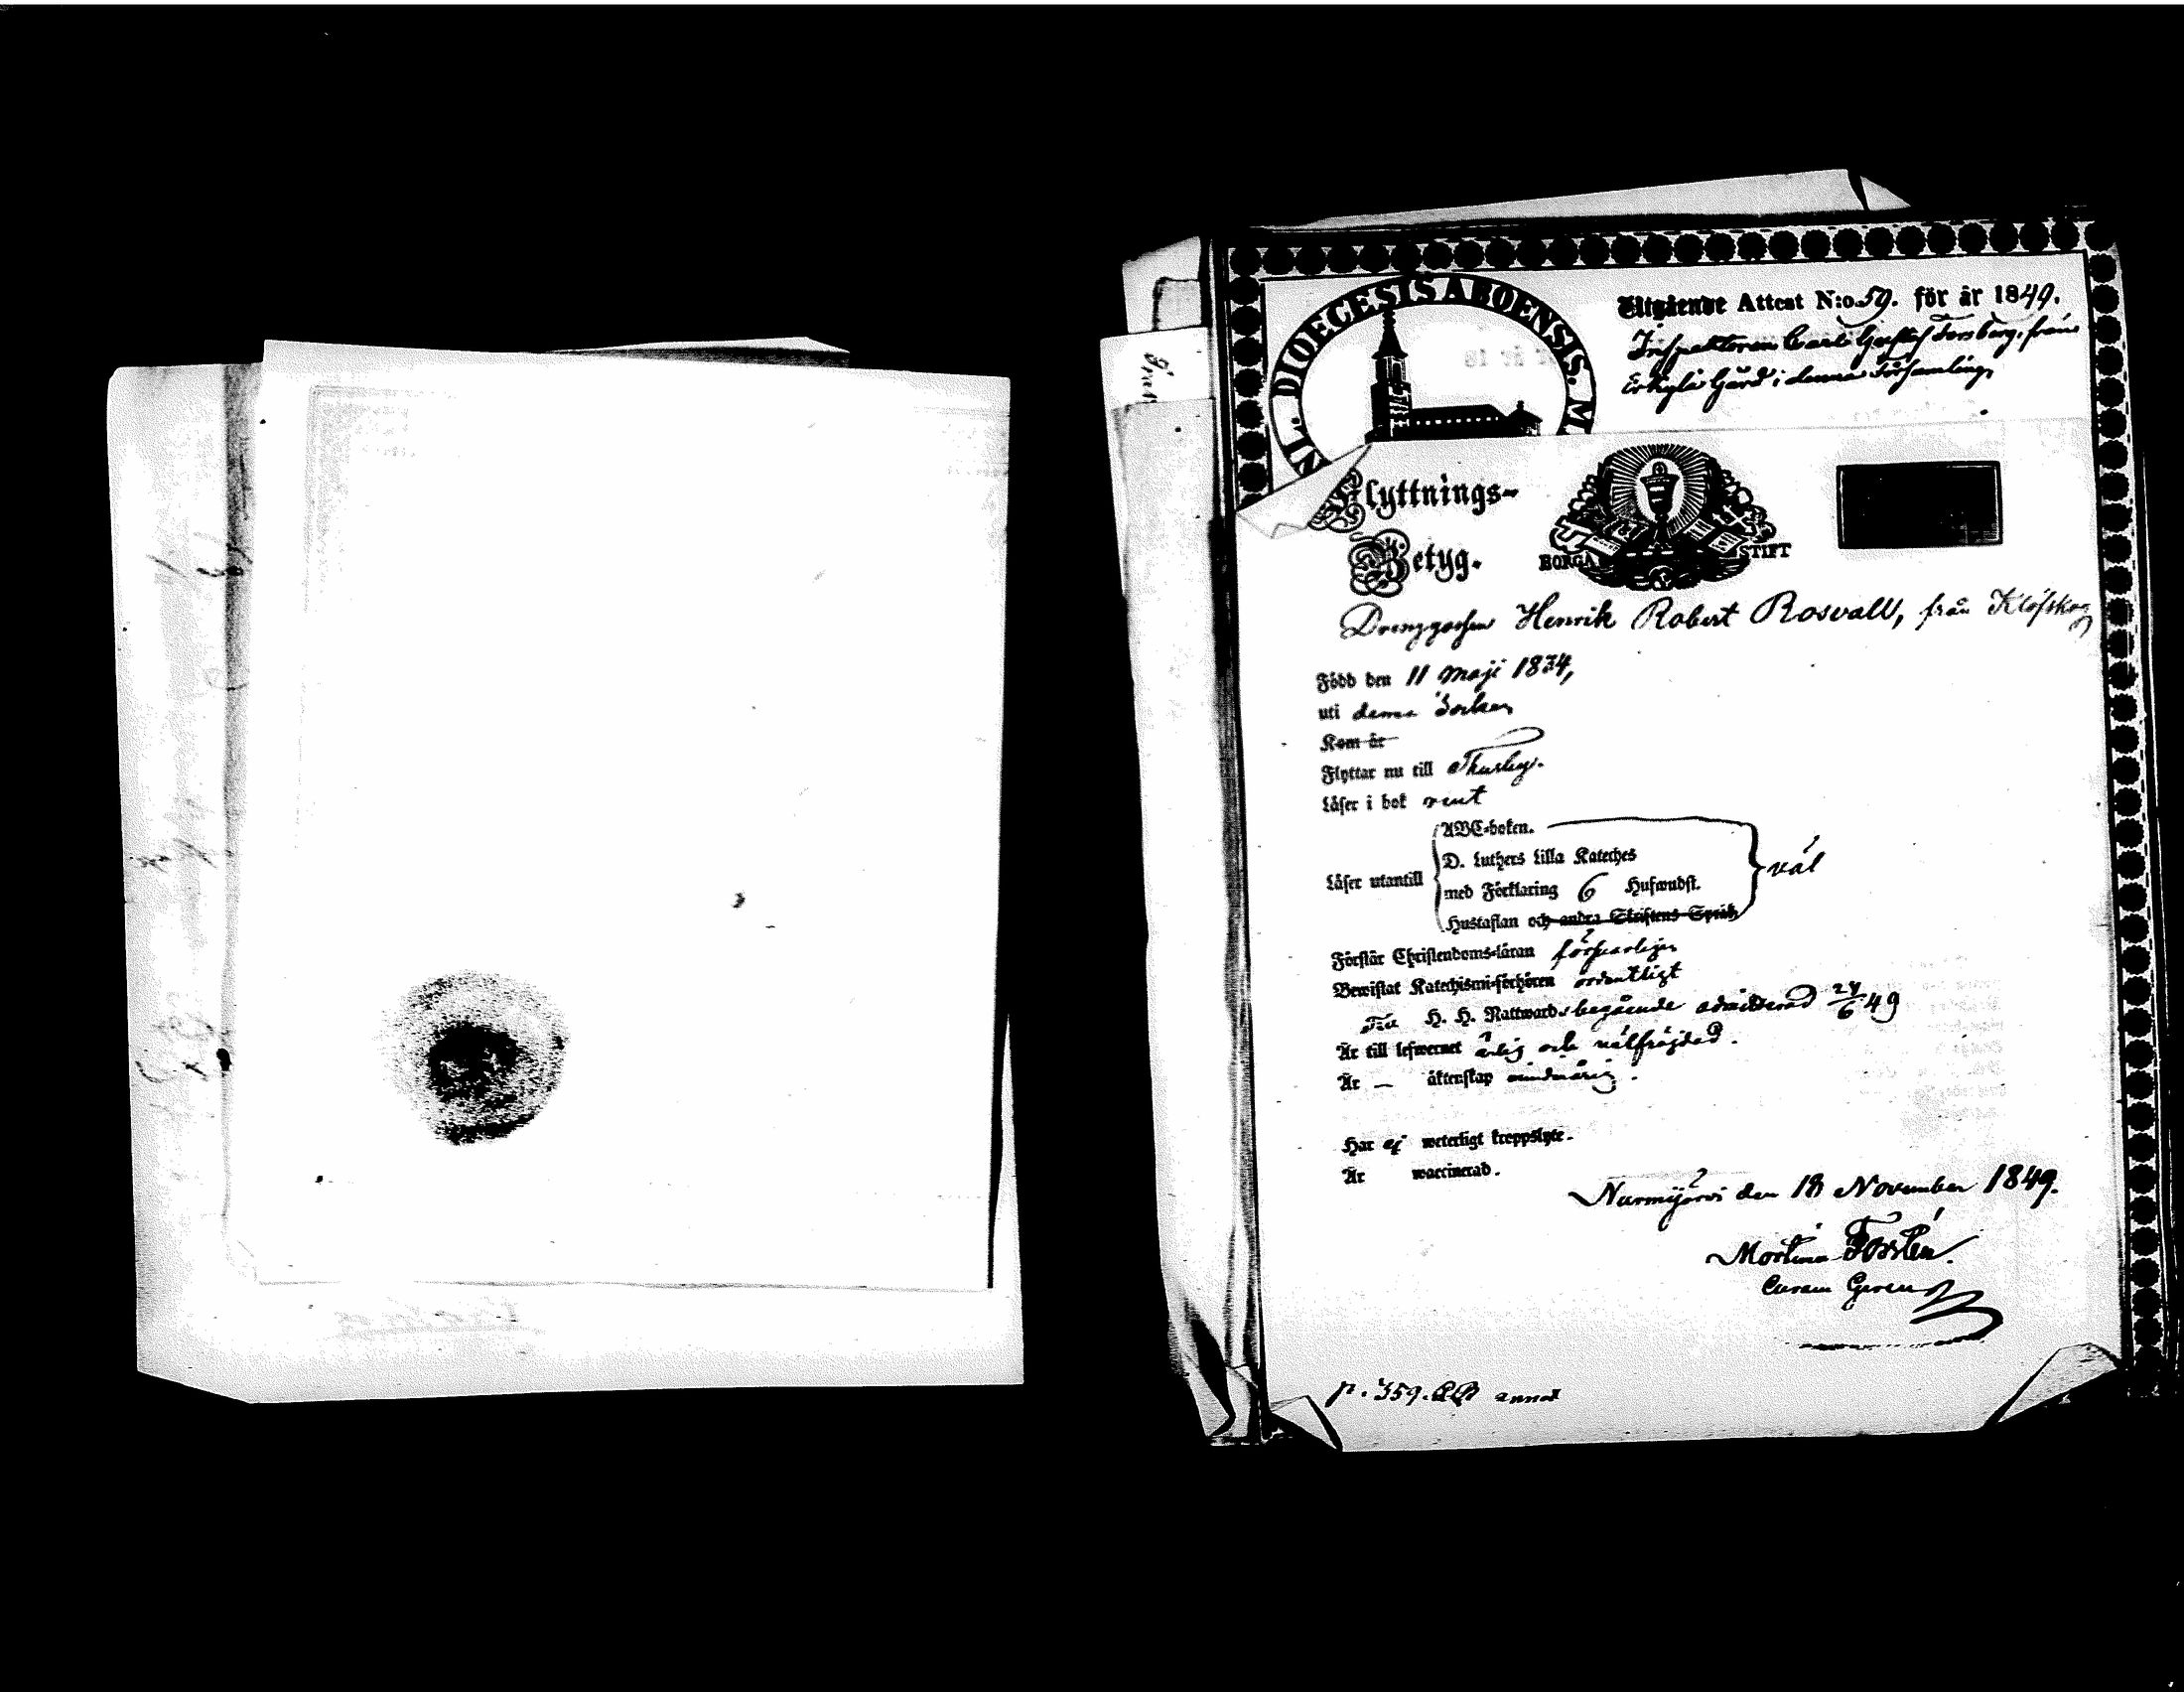 DIOECESIS ABOENSIS. M
Utgående Attest N:o 59. för år 1849.
Inspektoren Carl Gustaf Forsberg, från
Erkylä Gård i denna Församling,
Flyttnings-
Betyg.
BORGÅ STIFT
Drenggossen Henrik Robert Rosvall, från Klöfskog
Född den 11 Maji 1834,
uti denna Socken
Kom år
Flyttar nu till Thusby.
Läser i bok rent
ABC-boken.
D. Luthers Lilla Kateches
Läser utantill med Förklaring 6 Hufwudst. väl
Hustaflan och andra Skriftens Språk
Förstår Christendoms-läran försvarligen
Bewistat Katechismi-förhören ordentligt
Till H. H. Nattwards begående admitterad 24/6 49
Är till lefwernet ärlig och välfrägdad.
Är – äktenskap minderårig.
Har ej weterligt kroppslyte.
Är waccinerad.
Nurmijärvi den 18 November 1849.
Forstén.
Curam Gerens
p. 359.